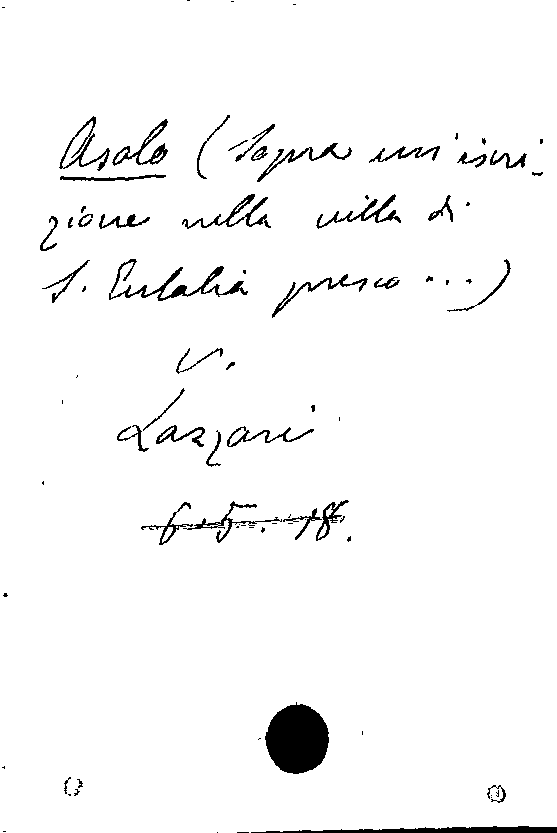 Asolo (Sopra un'iscri-
zione nella villa di
S. Eulalia presso ...)
V.
Lazzari
6.5.18.